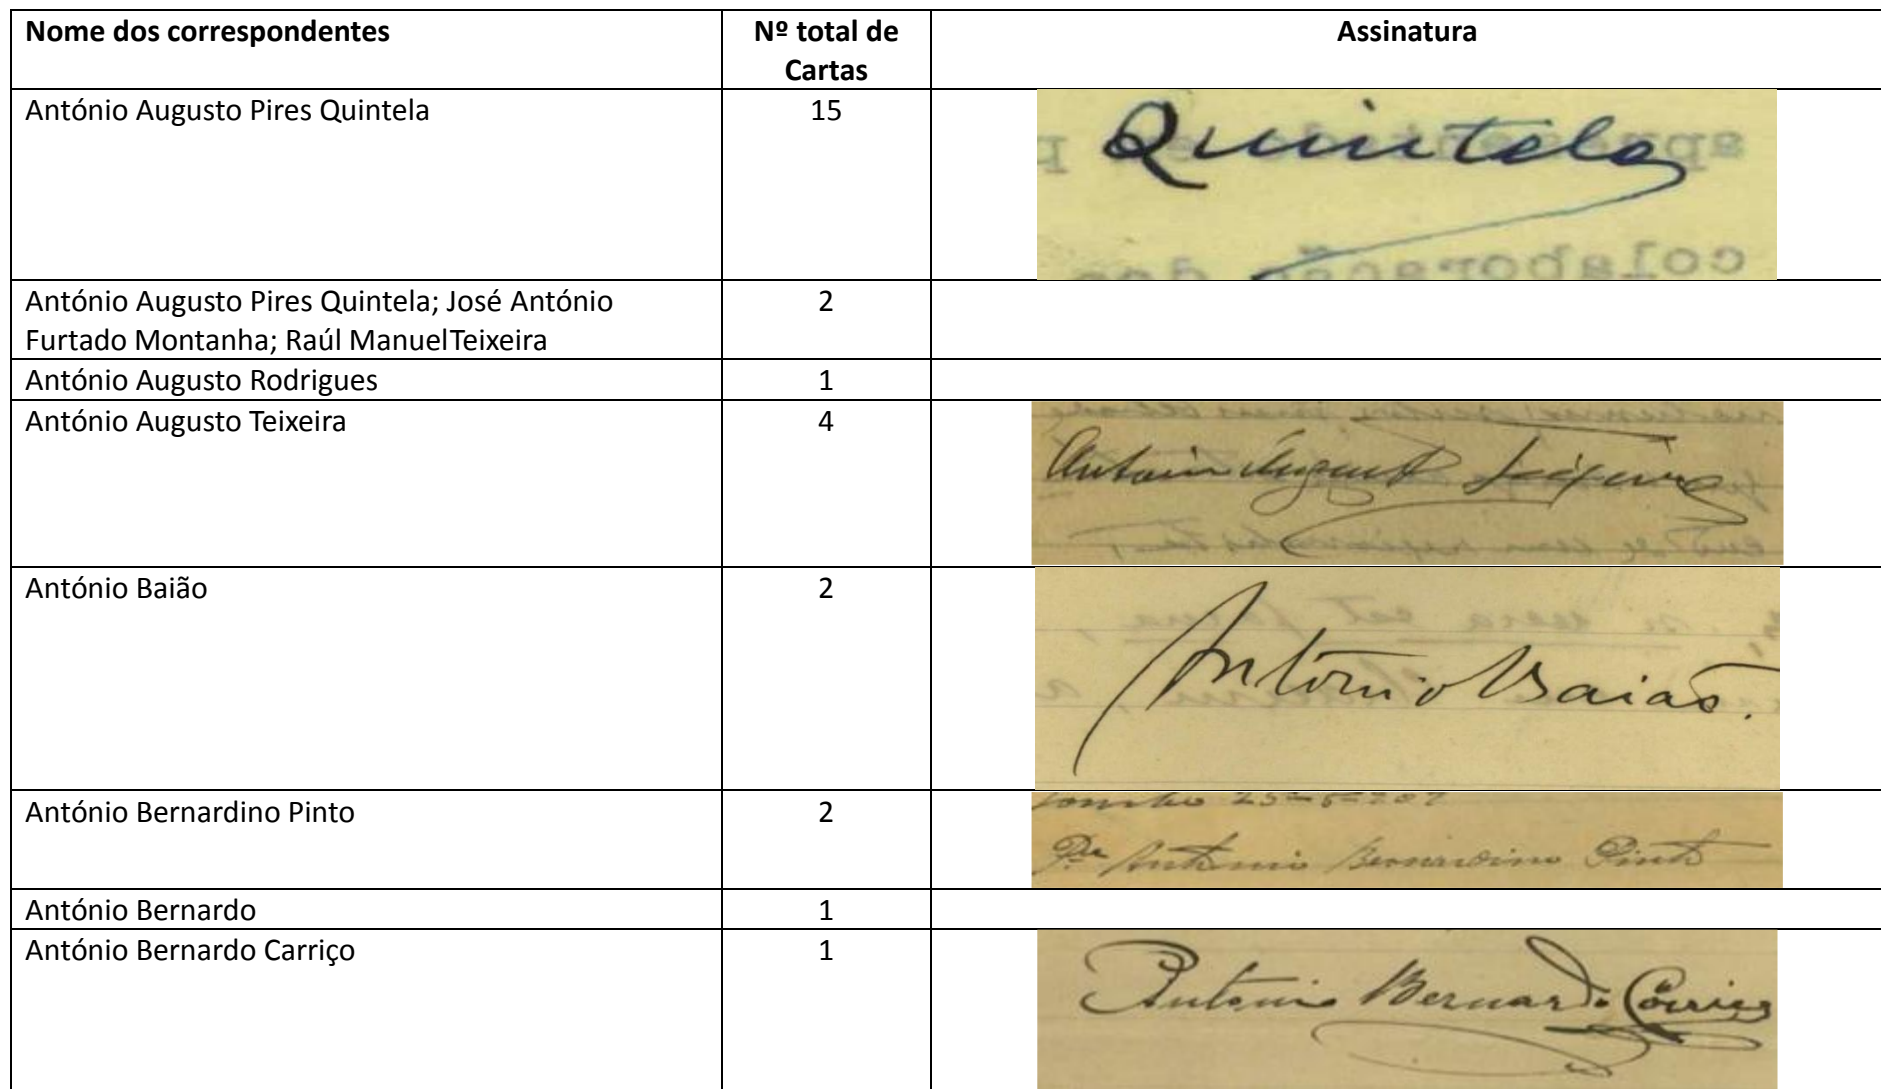 Nome dos correspondentes
Nº total de
Cartas
Assinatura
António Augusto Pires Quintela
15
Quintela
António Augusto Pires Quintela; José António
Furtado Montanha; Raúl ManuelTeixeira
2
António Augusto Rodrigues
1
António Augusto Teixeira
4
Antonio Augusto Teixeira
António Baião
2
Antonio Baião.
António Bernardino Pinto
2
Pe Antonio Bernardino Pinto
António Bernardo
1
António Bernardo Carriço
1
Antonio Bernardo Carriço